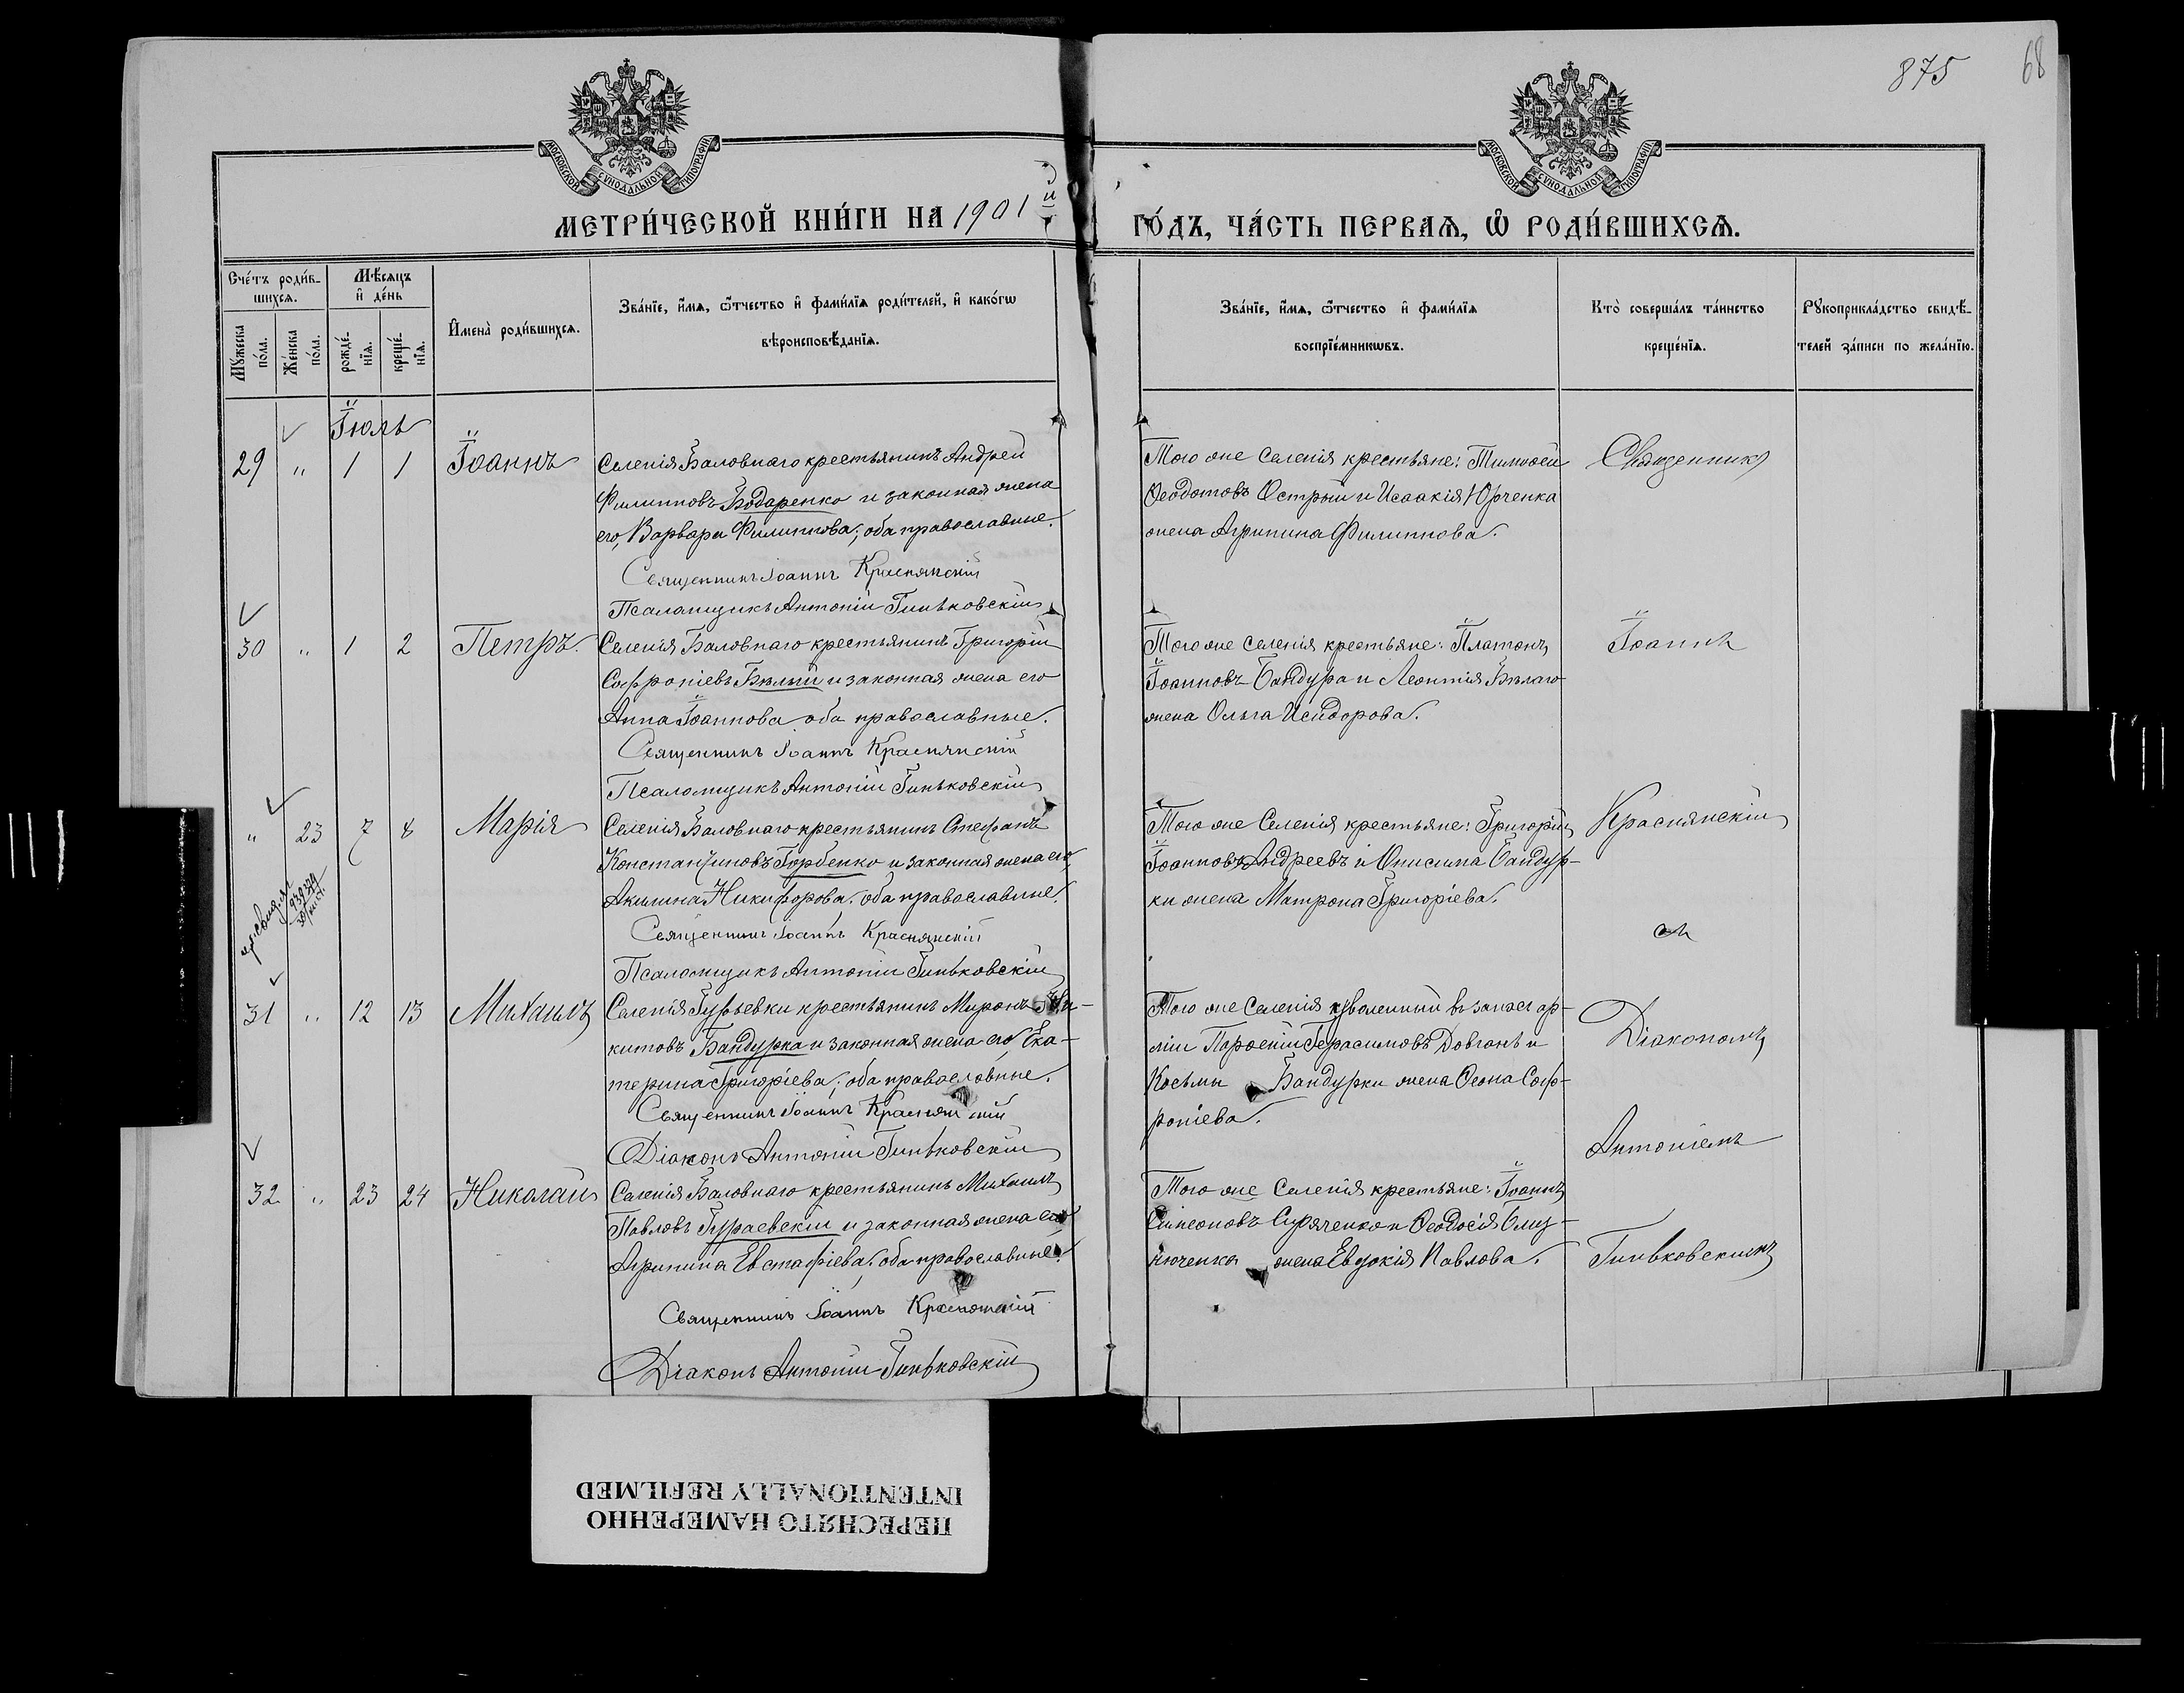 875
68
МОСКОВСКОЙ СѴНОДАЛЬНОЙ ТИПОГРАФІИ
МОСКОВСКОЙ СѴНОДАЛЬНОЙ ТИПОГРАФІИ
МЕТРИ́ЧЕСКОЙ КНИ́ГИ НА 1901й ГО́ДЪ, ЧА́СТЬ ПЕРВАѦ, Ѡ҆ РОДИ́ВШИХСѦ.
Сче́тъ роди́в-
шихсѧ.
Мꙋ́жеска по́ла.
Же́нска по́ла.
Мѣ́сѧцъ
и҆ де́нь
рожде́-
нїѧ.
креще́-
нїѧ.
И҆мена̀ роди́вшихсѧ.
Зва́нїе, и҆́мѧ, ѻ҆́тчество и҆ фами́лїѧ роди́телей, и҆ како́гѡ
вѣроисповѣ́данїѧ.
Зва́нїе, и҆́мѧ, ѻ҆́тчество и҆ фами́лїѧ
воспрїе́мникѡвъ.
Кто̀ соверша́лъ та́инство
креще́нїѧ.
Рꙋкоприкла́дство свидѣ́-
телей за́писи по жела́нїю.
Іюль
29 " 1 1 Іоаннъ
Селенія Баловнаго крестьянинъ Андрей
Филипповъ Бодаренко и законная жена
его, Варвара Филиппова; оба православные.
Священникъ Іоаннъ Краснянскій
Псаломщикъ Антоній Гиньковскій
Того же селенія крестьяне: Тимофей
Ѳеодотовъ Острый и Исаакія Юрченка
жена Агрипина Филиппова.
Священник
30 " 1 2 Петръ.
Селенія Баловнаго крестьянинъ Григорій
Софроніевъ Бѣлый и законная жена его
Анна Іоаннова оба православные.
Священникъ Іоаннъ Краснянскій
Псаломщикъ Антоній Гиньковскій
Того же селенія крестьяне: Платонъ
Іоанновъ Бандура и Леонтія Бѣлаго
жена Ольга Исидорова.
Іоаннъ
" 23 7 8 Марія
Селенія Баловнаго крестьянинъ Стефанъ
Константиновъ Горбенко и законная жена его,
Акилина Никифорова; оба православные.
Священникъ Іоаннъ Краснянскій
Псаломщикъ Антоній Гиньковскій
Того же селенія крестьяне: Григорій
Іоанновъ Андреевъ и Онисима Бандур-
ки жена Матрона Григоріева.
Краснянскій
съ
31 " 12 13 Михаилъ
Селенія Гурьевки крестьянинъ Миронъ Ни-
китовъ Бандурка и законная жена его, Ека-
терина Григоріева; оба православные.
Священникъ Іоаннъ Краснянскій
Діаконъ Антоній Гиньковскій
Того же селенія уволенный въ запасъ ар-
міи Парѳеній Герасимовъ Довгань и
Косьмы Бандурки жена Ѳеона Соф-
роніева.
Діакономъ
Антоніемъ
32 " 23 24 Николай
Селенія Баловнаго крестьянинъ Михаилъ
Павловъ Гураевскій и законная жена его
Агрипина Евстафіева; оба православные.
Священникъ Іоаннъ Краснянскій
Діаконъ Антоній Гиньковскій
Того же селенія крестьяне: Іоаннъ
Симеоновъ Сиряченко и Ѳеодосія
жена Евдокія Павлова.
Гиньковскимъ
ПЕРЕСНЯТО НАМЕРЕННО
INTENTIONALLY REFILMED